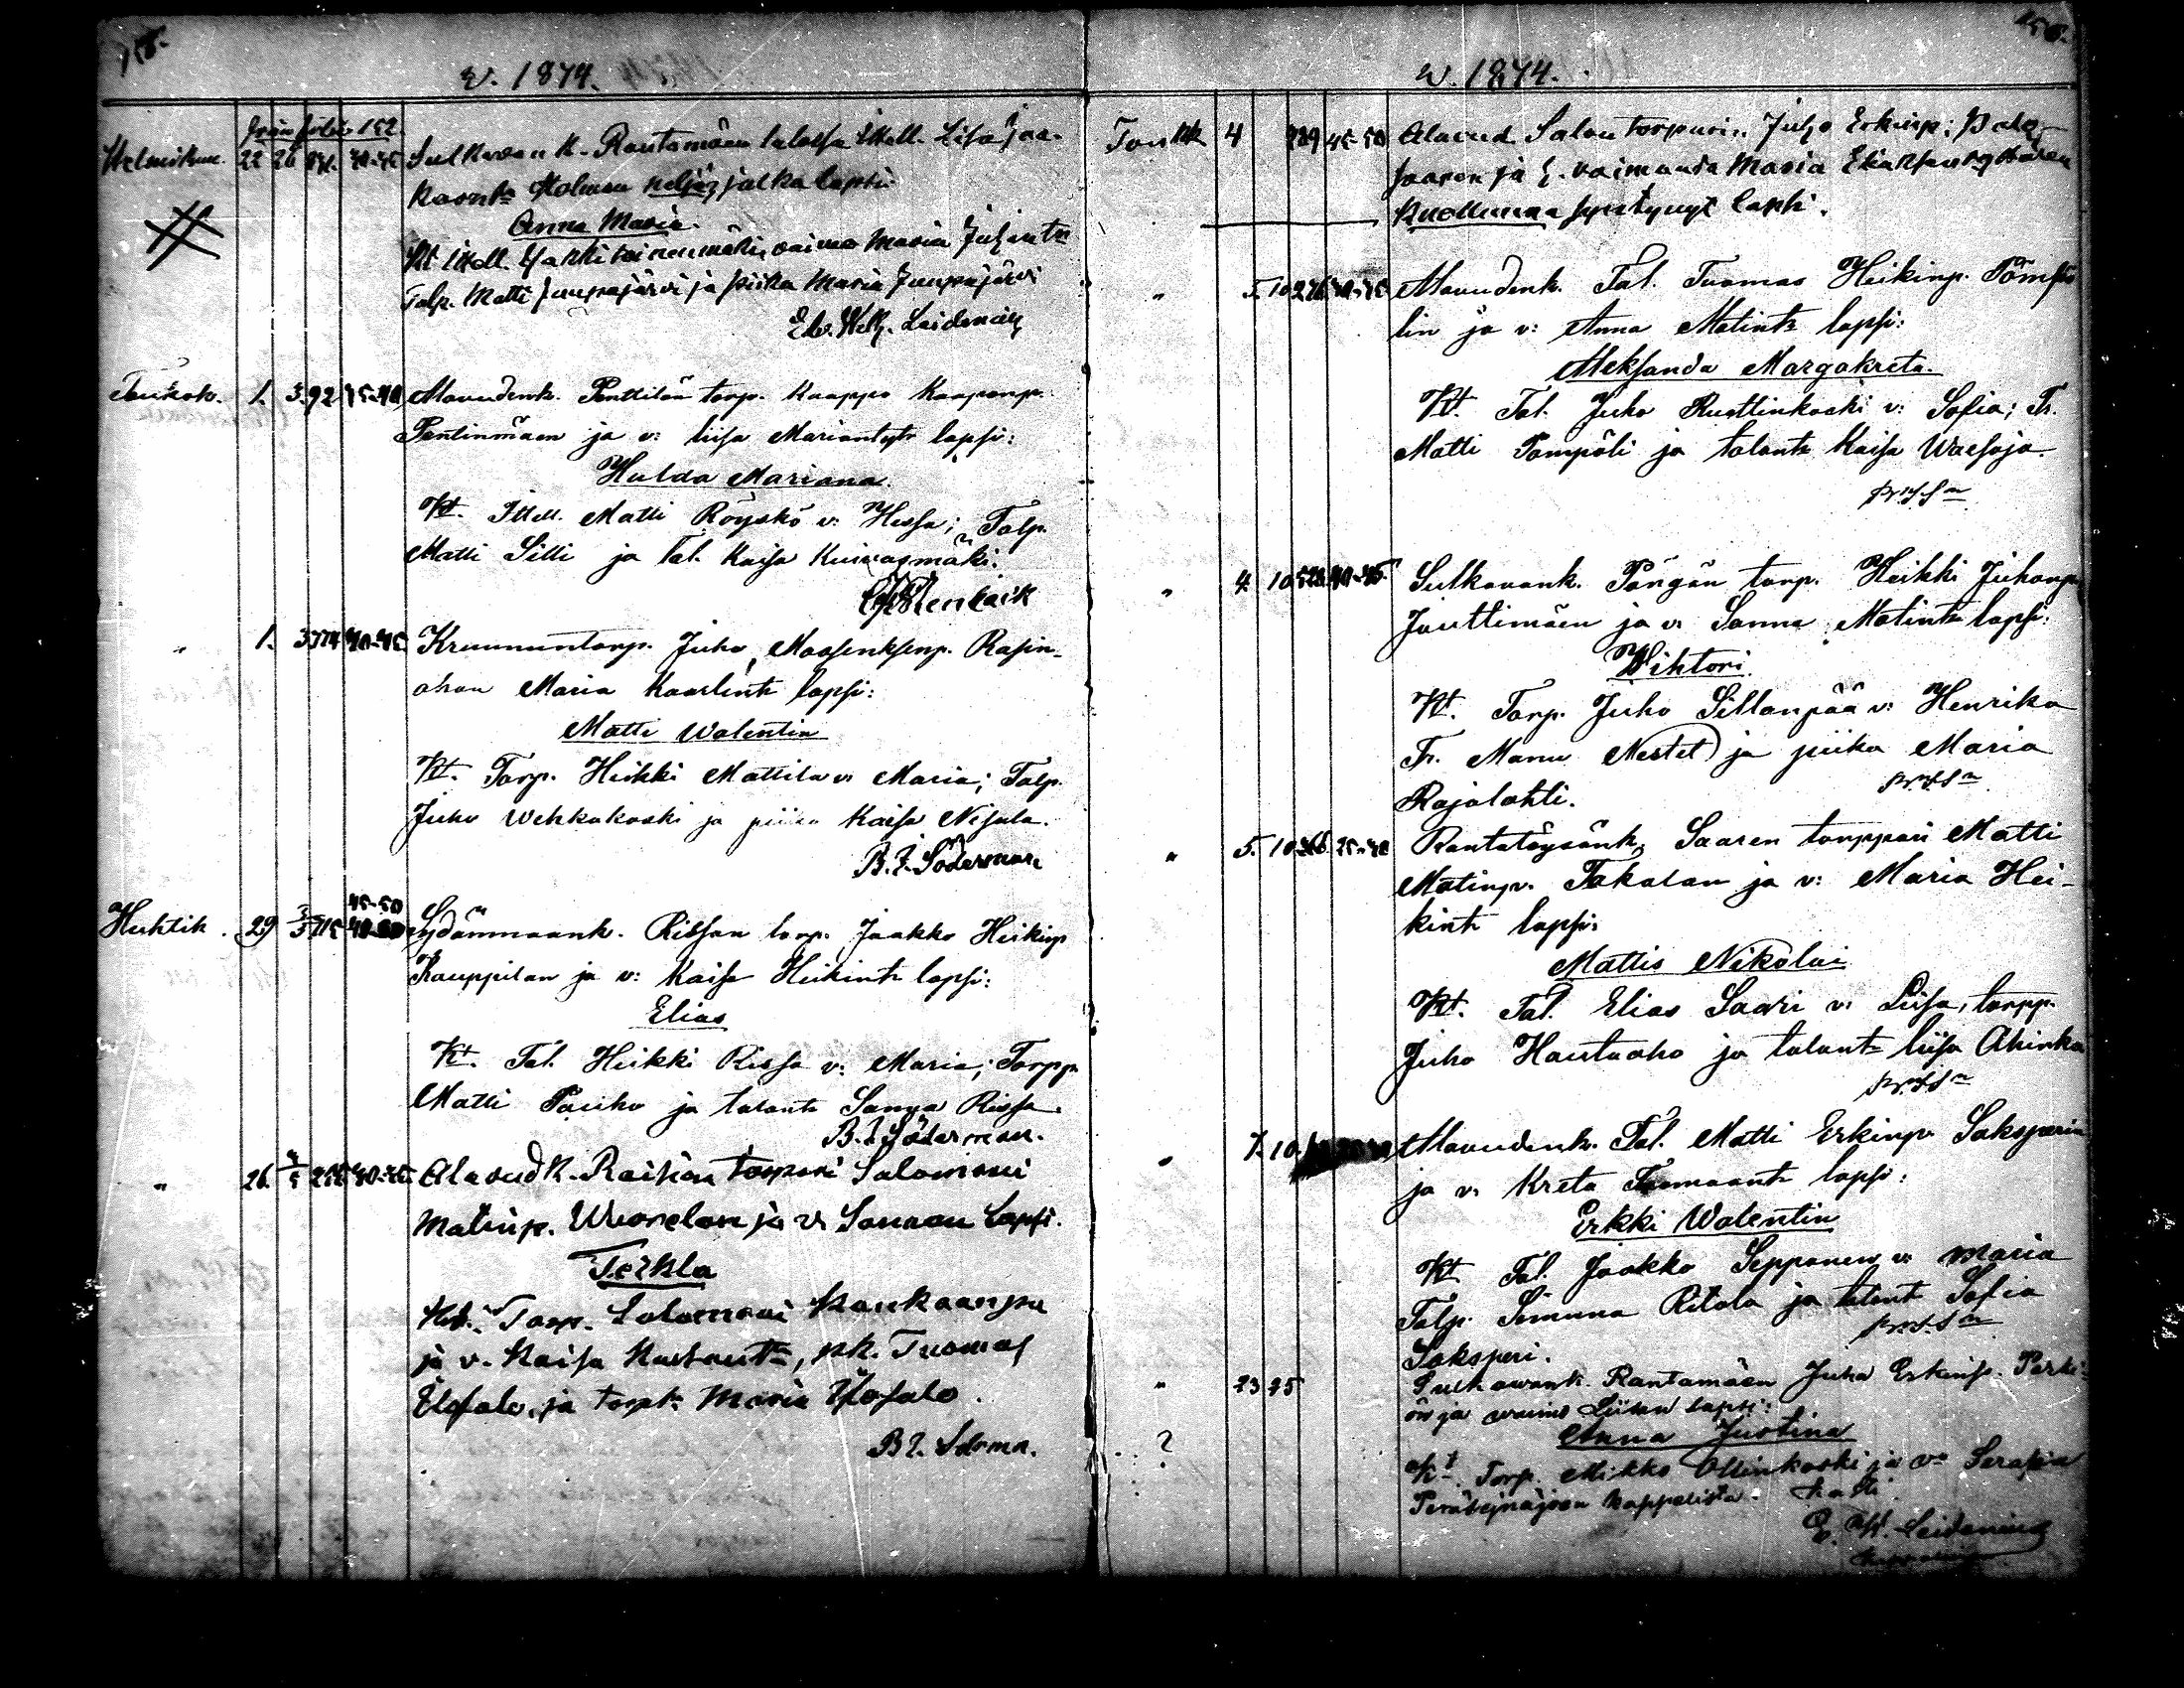 w. 1874.
från folio 152.
Helmikuu. 22 26 40-45 Sulkavan k. Rantamäen talossa Itsell. Lisa Jaa-
kaont. Holman neljäs jalka lapsi
Anna Maria.
Kt Itsell. vaimo Maria Juhont.
Talp. Matti Juupajärvi ja piika Maria Juupajärvi
Leidenius
Toukok. 1. 3. 92 35-40 Alavudenk. Penttilän torp. Kaappo Kaaponp.
Pentinmäen ja v: liisa Mariantytr lapsi:
Hulda Mariana.
Kt. Itsell. Matti Röyskö v: Hessa; Talp.
Matti Silli ja Tal. Kaisa Kuivasmäki.
" 1. 3 774 40-45 Kruununtorp. Juho Maasenksenp. Rasin-
ahon Maria Kaarlint. lapsi:
Matti Walentin
Kt. Torp. Heikki Mattila v: Maria; Talp.
Juho Wehkakoski ja piika Kaisa Nisula.
B. Z. Söderman
45-50
Huhtik. 29 3/5 715 Sydänmaank. Rissan torp. Jaakko Heikinp
Kauppilan ja v: Kaisa Heikint. lapsi:
Elias
Kt. Tal. Heikki Rissa v: Maria; Torpp.
Matti Pauho ja talont. Sanna Rissa.
B. Z. Söderman.
" 26 40-45 Alavud K. Raisian torpari Salomoni
Matinp. Wuorelan ja v: Sannan Lapsi.
Tekla
Kt. Torp. Salomoni Kaukaanpa
ja v. Kaisa Kustaant., pk. Tuomas
Ylosalo, ja torpt. Maria Ylosalo.
B Z. Sdrman.
w. 1874.
Toukk 4 239 45-50 Alavud. Salon torpari. Juho Erkinp; Palo-
saaren ja h. vaimonsa Maria Eliaksentyttären
Kuolluna syntynyt lapsi.
" 5. 10 226 40-45 Alavudenk. Tal. Tuomas Heikinp. Tömpö-
lin ja v: Anna Matint. lapsi:
Aleksanda Margakreta.
Kt. Tal. Juho Rustlinkoski v: Sofia; Tr.
Matti Tömpöli ja talont. Kaisa Waesoja.
" 4. 10 40-45 Sulkavank. Pöngän torp. Heikki Juhonp.
Jouttimäen ja v: Sanna Matint. lapsi:
Wihtori.
Kt. Torp. Juho Sillanpää v: Henrika
Tr. Manu Nestet ja piika Maria
Rajalahti.
" 5. 10 35-40 Rantatöysänk, Saaren torppari Matti
Matinp. Takalan ja v: Maria Hei-
kint. lapsi:
Mattis Nikolai
Kt. Tal. Elias Saari v: Liisa, torpp.
Juho Hautaaho ja talont. liisa Ahinko
" 7. 10 Alavudenk. Tal. Matti Erkinp. Saksperin
ja v: Kreta Tuomaant. lapsi:
Erkki Walentin
Kt. Tal. Jaakko Seppänen v: Maria
Talp. Simuna Ritola ja talont. Sofia
Saksperi.
" 23 25 Sulkawank. Rantamäen Juha Erkinp. Perki-
ön ja waimo Liisan lapsi:
? Anna Justina
Kt. Torp. Mikko Ollinkoski ja v: Serafia
Peräseinäjoen kappelista.
E. W. Leidenius